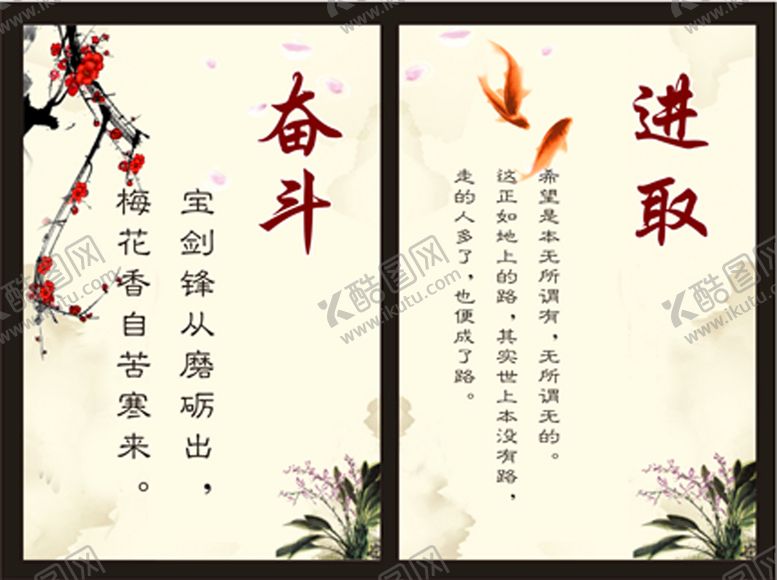 奋斗
宝剑锋从磨砺出，
梅花香自苦寒来。
进取
希望是本无所谓有，无所谓无的。
这正如地上的路，其实世上本没有路，
走的人多了，也便成了路。
酷图网
www.ikutu.com